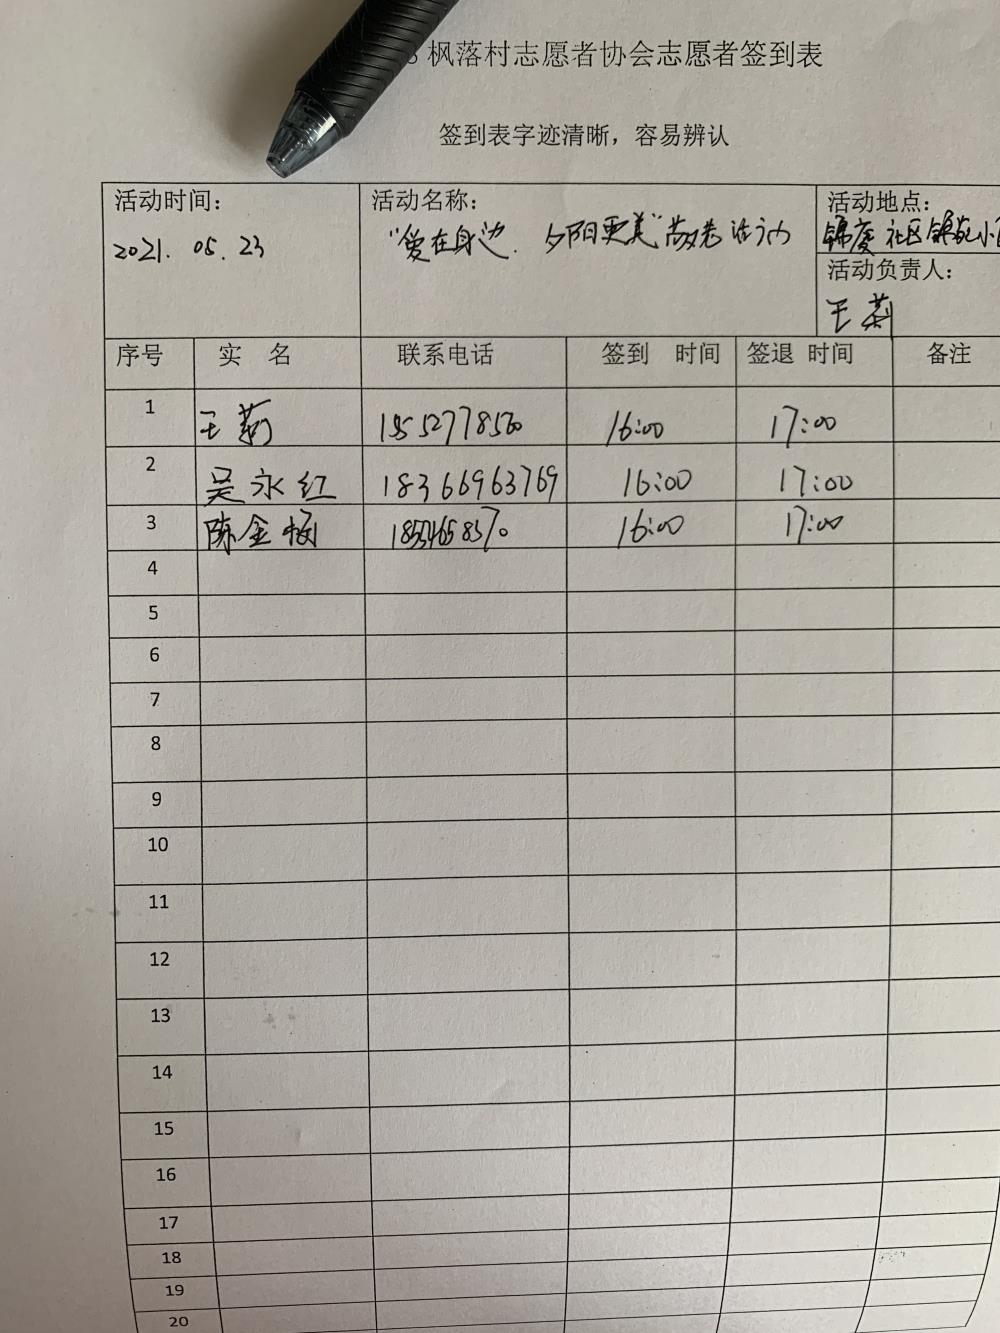 枫落村志愿者协会志愿者签到表
签到表字迹清晰，容易辨认
活动时间： 活动名称： 活动地点：
2021.05.23 “爱在身边.夕阳更美”敬老活动 锦度社区锦苑小
活动负责人：
王莉
序号 实 名 联系电话 签到 时间 签退 时间 备注
1 王莉 16:00 17:00
2 吴永红 18366963769 16:00 17:00
3 陈金梅 16:00 17:00
4
5
6
7
8
9
10
11
12
13
14
15
16
17
18
19
20